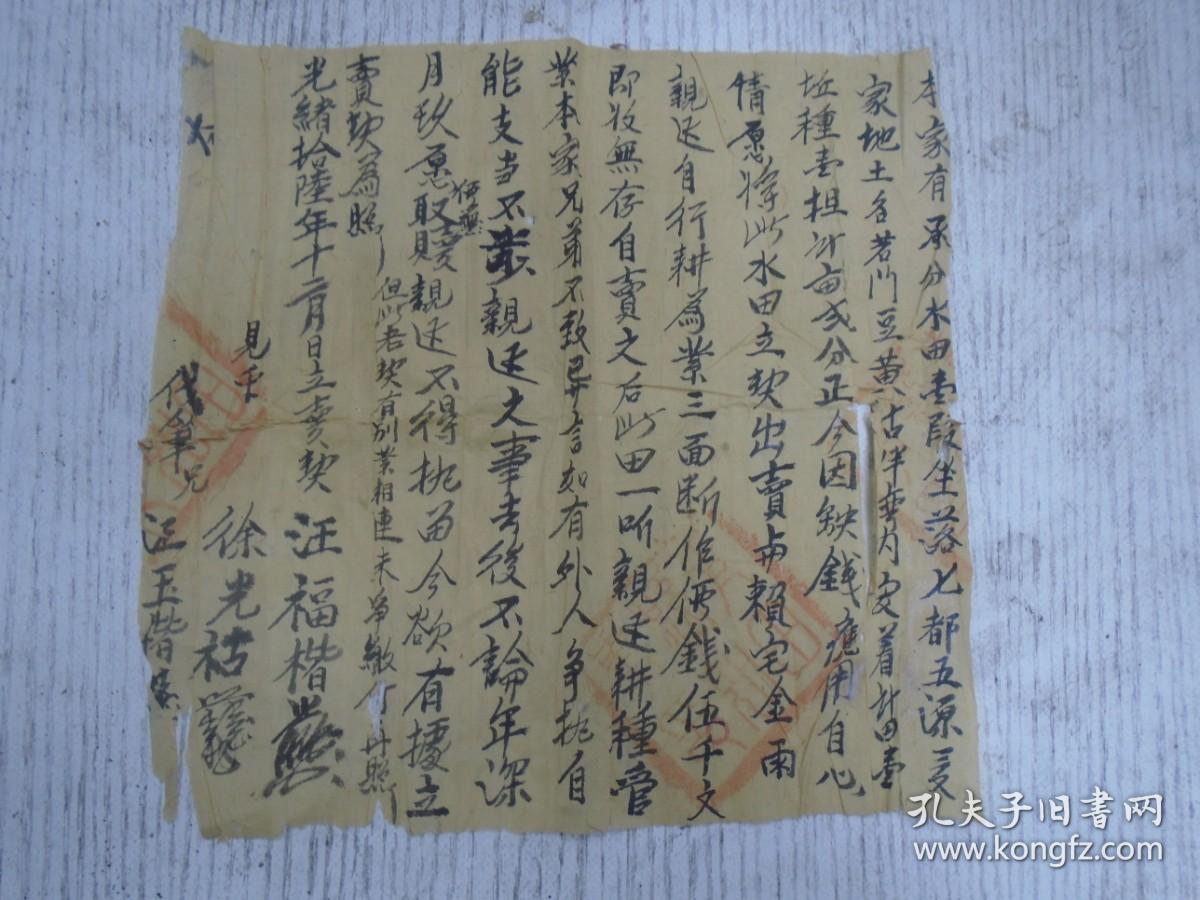 本家有承分水田壹段坐落七都五源
家地土名若门豆黄古半內安着計田壹
坵種壹担計亩弍分正今因缺錢應用自心
情愿将此水田立契出賣与賴宅金雨
親边自行耕為業三面断作價錢伍千文
即收無存自賣之后此田一听親边耕種管
業本家兄弟不敢異言如有外人争执自
能支当不干親边之事去後不論年深
月玖愿取贖親边不得执留今欲有據立
仍無
賣契為照
但此老契有別業相連未為繳付
光緒拾陸年十二月日立賣契 汪福楷
見手 徐光祜
代筆兄 汪玉楷
孔夫子旧书网
www.kongfz.com